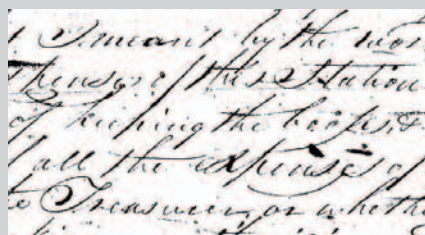 meant by the wor
penses of this Station
of keeping the books &
all the expenses of
Treasurer, or wheth